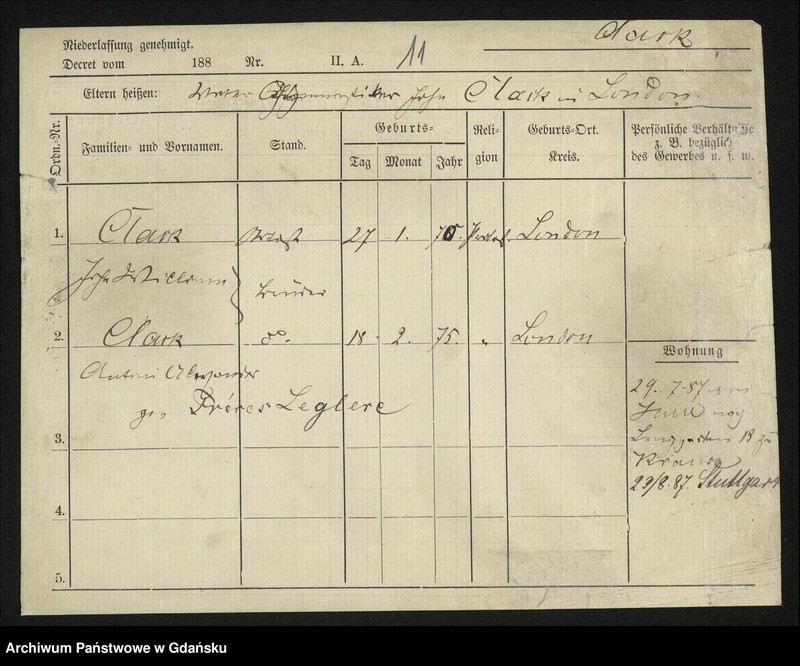 Clark
Niederlassung genehmigt.
Decret vom 188 Nr. II. A. 11
Eltern heißen: Vater John Clark in London
Ordn.-Nr.
Familien- und Vornamen.
Stand.
Geburts-
Tag Monat Jahr
Religion
Geburts-Ort.
Kreis.
Persönliche Verhältnisse
z. B. bezüglich
des Gewerbes u. s. w.
1. Clark Artist 27 1. 70. Protest. London
John William
Brüder
2. Clark do. 18. 2. 75. " London
Antoni Alexander
gen Fréres Leglere
Wohnung
29. 7. 87 von
nach
Langgarten 18 zu
23/8. 87. Stuttgart
3.
4.
5.
Archiwum Państwowe w Gdańsku